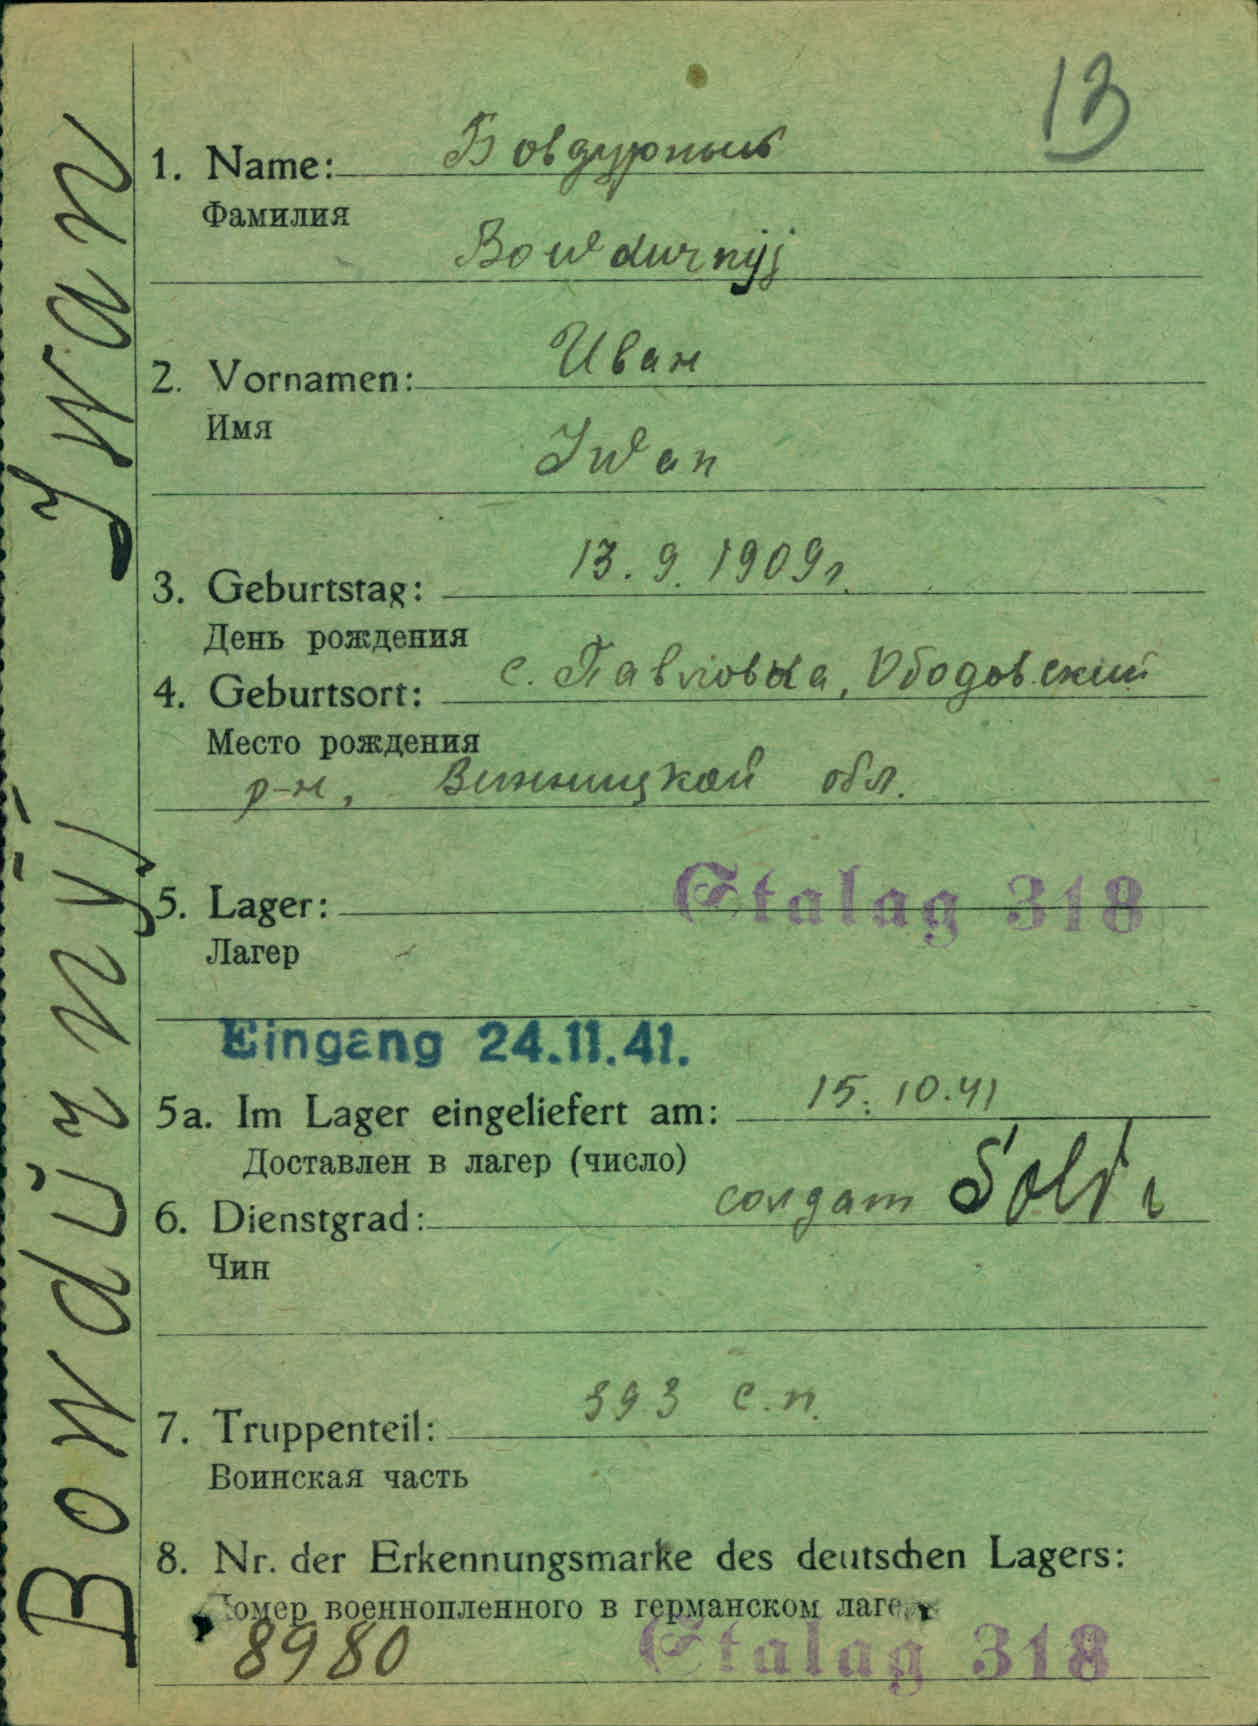 13
1. Name: Бовдурный
Фамилия
Bowdurnyj
2. Vornamen: Иван
Имя
Iwan
3. Geburtstag: 13. 9. 1909г.
День рождения
4. Geburtsort: с. Павловка, Ободовский
Место рождения
р-н, Винницкой обл.
5. Lager: Stalag 318
Лагер
Eingang 24.11.41.
5a. Im Lager eingeliefert am: 15. 10. 41
Доставлен в лагер (число)
6. Dienstgrad: солдат Sold.
Чин
7. Truppenteil: 393 с.п.
Воинская часть
8. Nr. der Erkennungsmarke des deutschen Lagers:
Номер военнопленного в германском лаге
8980 Stalag 318
Bowdŭrnyj Iwan